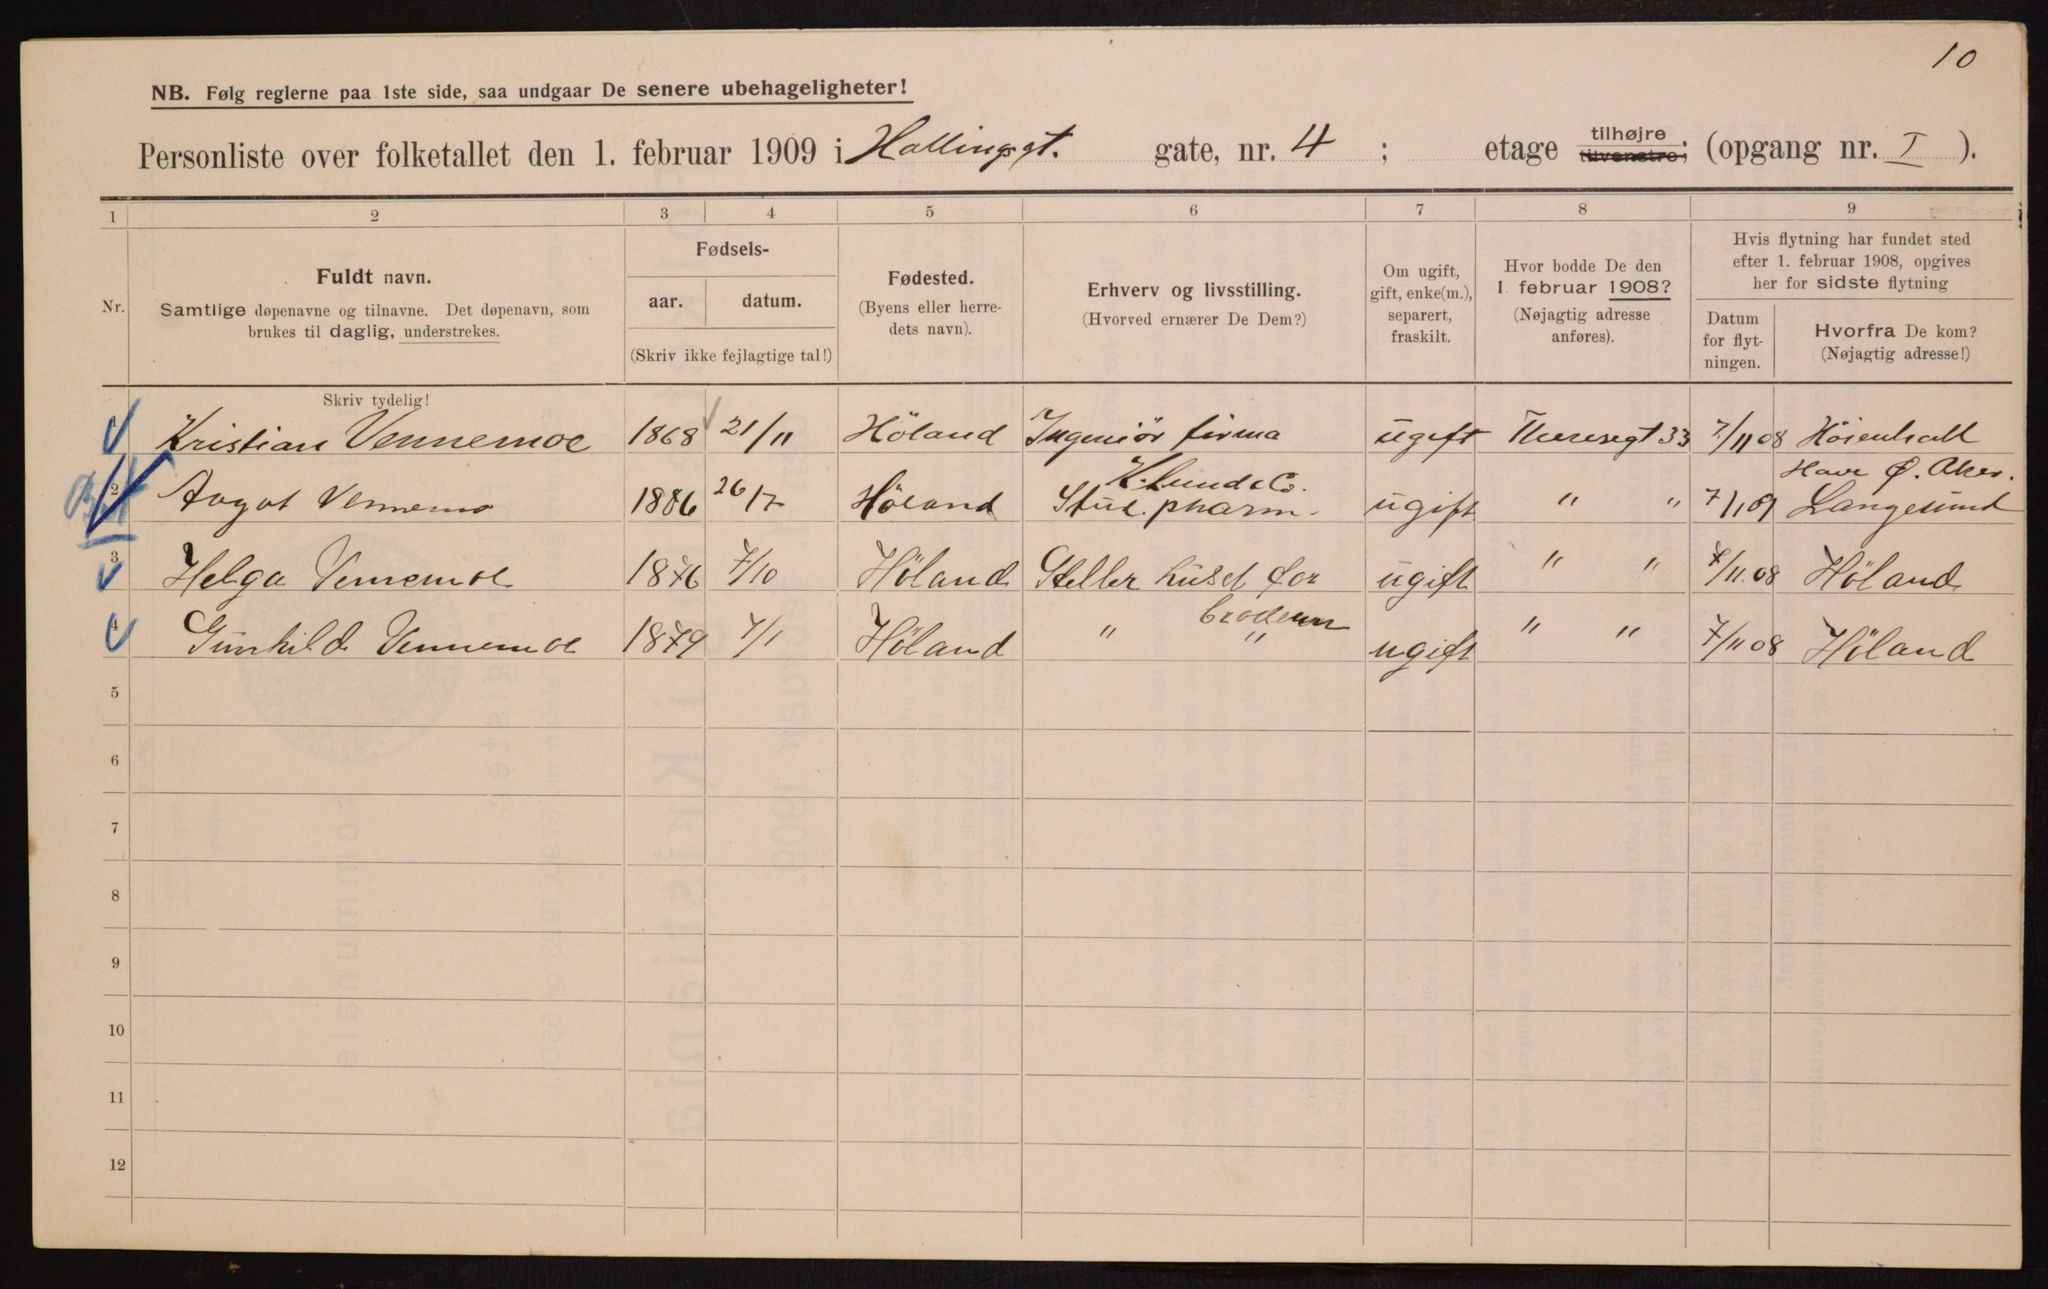 10
NB. Følg reglerne paa 1ste side, saa undgaar De senere ubehageligheter!
Personliste over folketallet den 1. februar 1909 i Hallingsgt. gate, nr. 4 ; etage tilhøjre tilvenstre; (opgang nr. I ).
1 2 3 4 5 6 7 8 9
Nr. Fuldt navn. Samtlige døpenavne og tilnavne. Det døpenavn, som brukes til daglig, understrekes.
Fødsels-
aar. datum.
(Skriv ikke fejlagtige tal!)
Fødested. (Byens eller herredets navn).
Erhverv og livsstilling. (Hvorved ernærer De Dem?)
Om ugift, gift, enke(m.), separert, fraskilt.
Hvor bodde De den 1. februar 1908? (Nøjagtig adresse anføres).
Hvis flytning har fundet sted efter 1. februar 1908, opgives her for sidste flytning
Datum for flytningen. Hvorfra De kom? (Nøjagtig adresse!)
Skriv tydelig!
Kristian Vennemoe 1868 21/11 Höland Ingeniör firma K. Lund & Co. ugift Theresegt 33 7/11 08 Höienhall Have Ø. Aker.
2 Aagot Vennemo 1886 26/7 Höland Stud. pharm. ugift " " 7/1 09 Langesund
3 Helga Vennemoe 1876 7/10 Höland Steller huset for broderen ugift " " 7/11.08 Höland
4 Gunhild Vennemoe 1879 7/1 Höland " " ugift " " 7/11 08 Höland
5
6
7
8
9
10
11
12